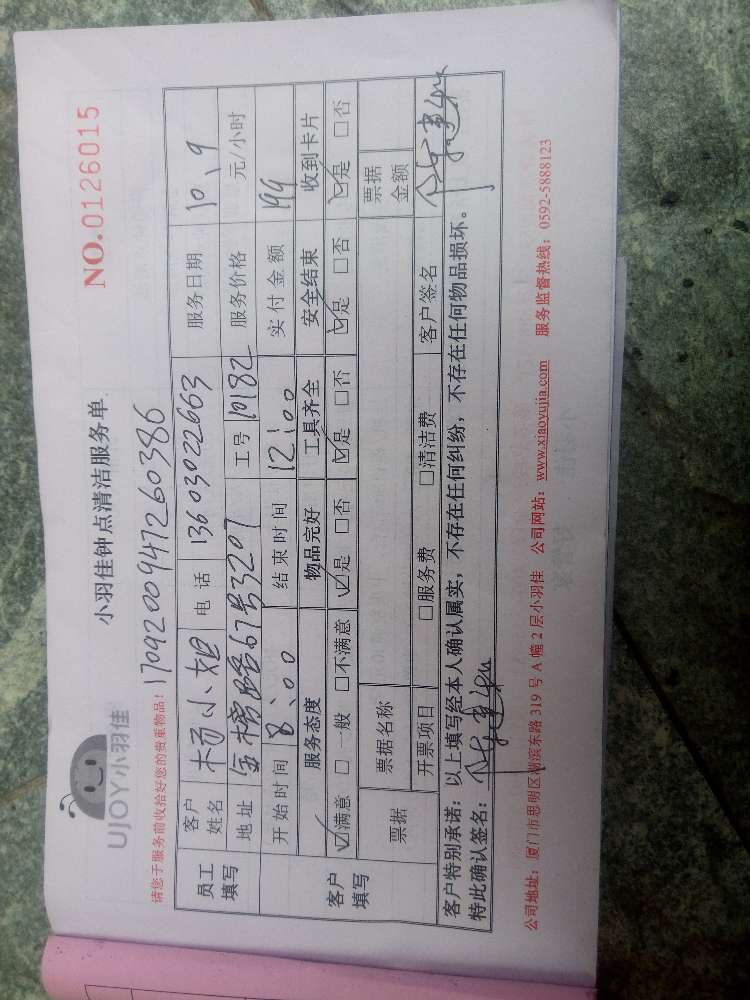 UJOY小羽佳
小羽佳钟点清洁服务单
NO.0126015
请您于服务前收拾好您的贵重物品!
1709200947260386
员工填写 客户姓名 杨小姐 电话 13603022663 服务日期 10、9
地址 金榜路67号3207 工号 10182 服务价格 元/小时
客户填写 开始时间 8:00 结束时间 12:00 实付金额 199
服务态度 物品完好 工具齐全 安全结束 收到卡片
☑满意 □一般 □不满意 ☑是 □否 ☑是 □否 ☑是 □否 ☑是 □否
票据 票据名称 票据金额
开票项目 □服务费 □清洁费 客户签名
客户特别承诺:以上填写经本人确认属实,不存在任何纠纷,不存在任何物品损坏。
特此确认签名:
公司地址:厦门市思明区湖滨东路319号A幢2层小羽佳 公司网站:www.xiaoyujia.com 服务监督热线:0592-5888123